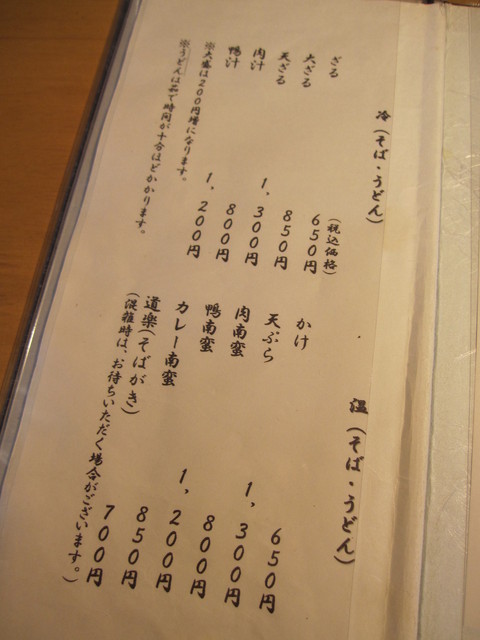 冷(そば・うどん)
(税込価格)
ざる 650円
大ざる 850円
天ざる 1,300円
肉汁 800円
鴨汁 1,200円
※大盛は200円増になります。
※うどんは茹で時間が十分ほどかかります。
温(そば・うどん)
かけ 650円
天ぷら 1,300円
肉南蛮 800円
鴨南蛮 1,200円
カレー南蛮 850円
道楽(そばがき) 700円
(混雑時は、お待ちいただく場合がございます。)